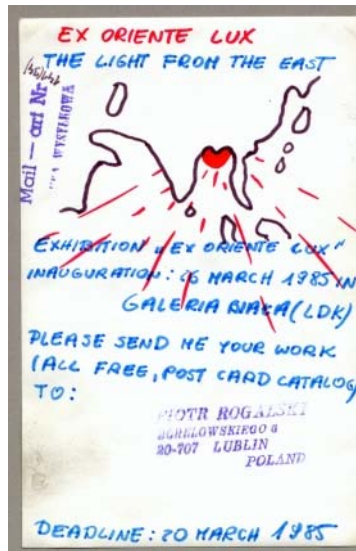 EX ORIENTE LUX
THE LIGHT FROM THE EAST
Mail — art Nr
EXHIBITION „EX ORIENTE LUX"
INAUGURATION: 26 MARCH 1985 IN
GALERIA BIAŁA (LDK)
PLEASE SEND ME YOUR WORK
(ALL FREE, POST CARD CATALOG)
TO:
PIOTR ROGALSKI
20-707 LUBLIN
POLAND
DEADLINE: 20 MARCH 1985